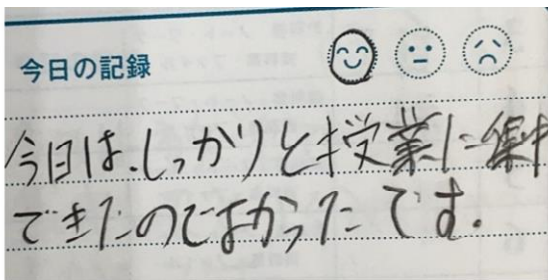 今日の記録
今日は、しっかりと授業に集中
できたのでよかったです.